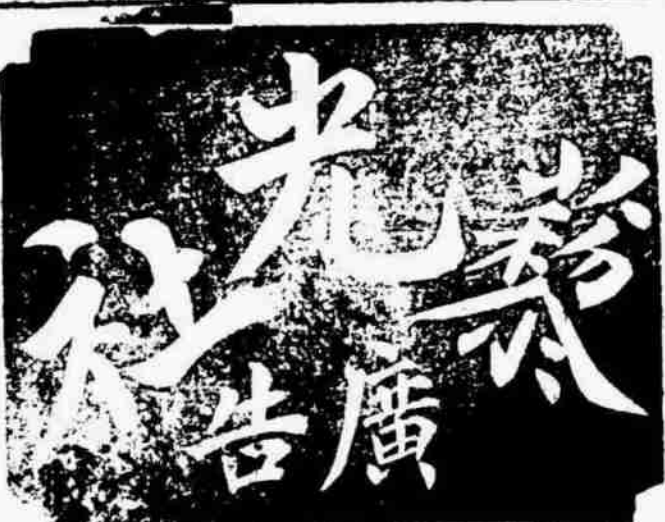 藜光社
廣告